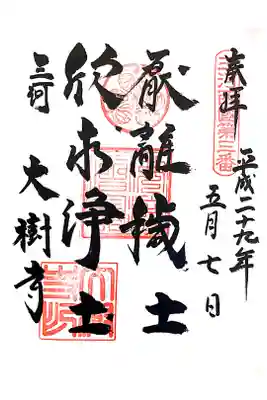 奉拝
平成二十九年
五月七日
厭離穢土
欣求浄土
三河 大樹寺